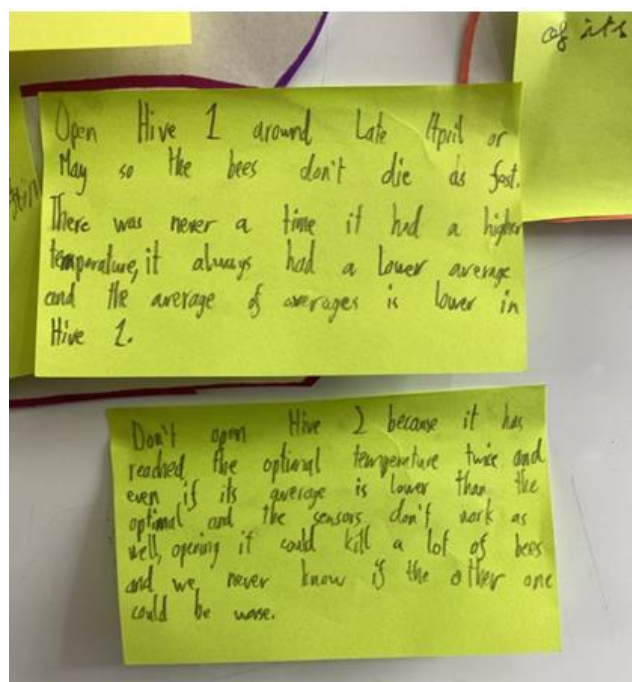 of its
Open Hive 1 around Late April or
May so the bees don't die as fast.
There was never a time it had a higher
temperature, it always had a lower average
and the average of averages is lower in
Hive 1.
Don't open Hive 2 because it has
reached the optional temperature twice and
even if its average is lower than the
optimal and the sensors don't work as
well, opening it could kill a lot of bees
and we never know if the other one
could be worse.